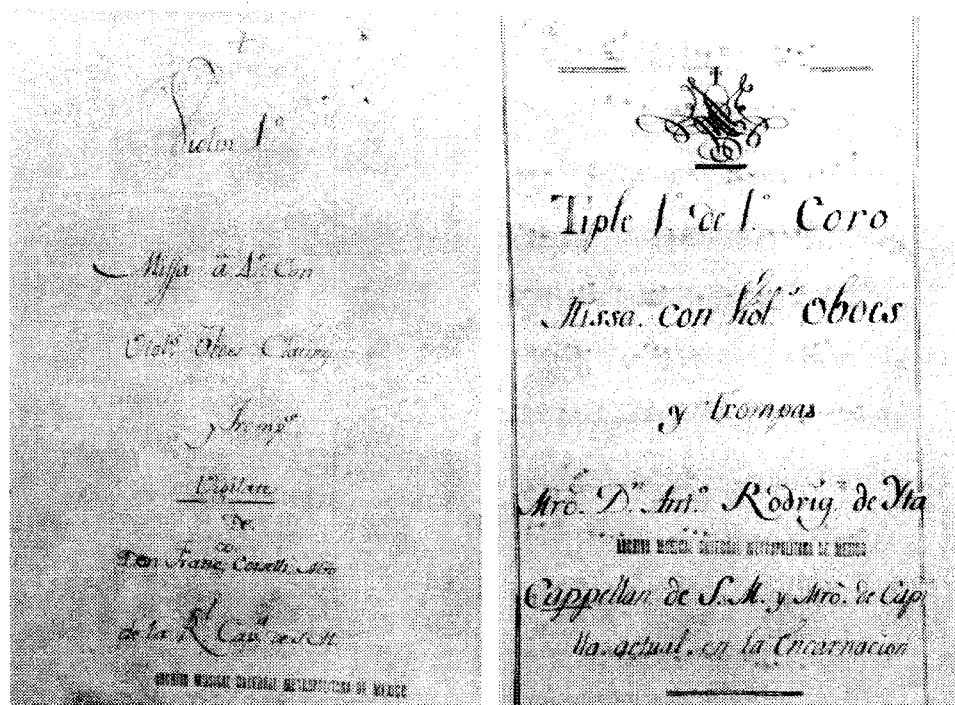 Violin 1.º
Missa â 4.º Con
Viol.s Oboes Clarin.s
y Tromp.s
Vigilate
De
Don Fran.co Corselli Mro
de la R.l Cap.a de S.M.
ARCHIVO MUSICAL CATEDRAL METROPOLITANA DE MEXICO
Tiple 1.º de 1.º Coro
Missa. con Viol.s Oboes
y trompas
Mrô. D.n Ant.º Rodrig.z de Yta
ARCHIVO MUSICAL CATEDRAL METROPOLITANA DE MEXICO
Cappellan de S.M. y Mrô. de Cap
lla. actual. en la Encarnacion